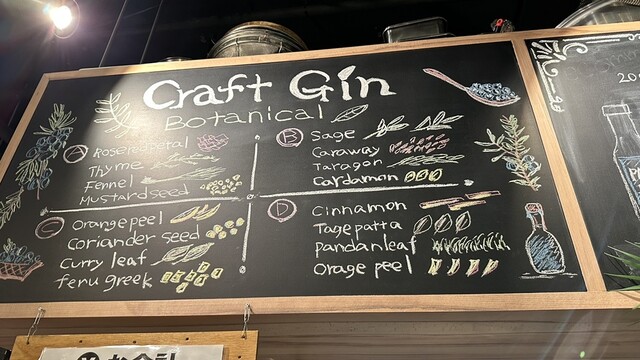 Craft Gin
Botanical
A
Rose red petal
Thyme
Fennel
Mustard seed
B
Sage
Caraway
Taragon
Cardamon
C
Orange peel
Coriander seed
Curry leaf
fenu greek
D
Cinnamon
Tage patta
Pandan leaf
Orage peel
20
お会計